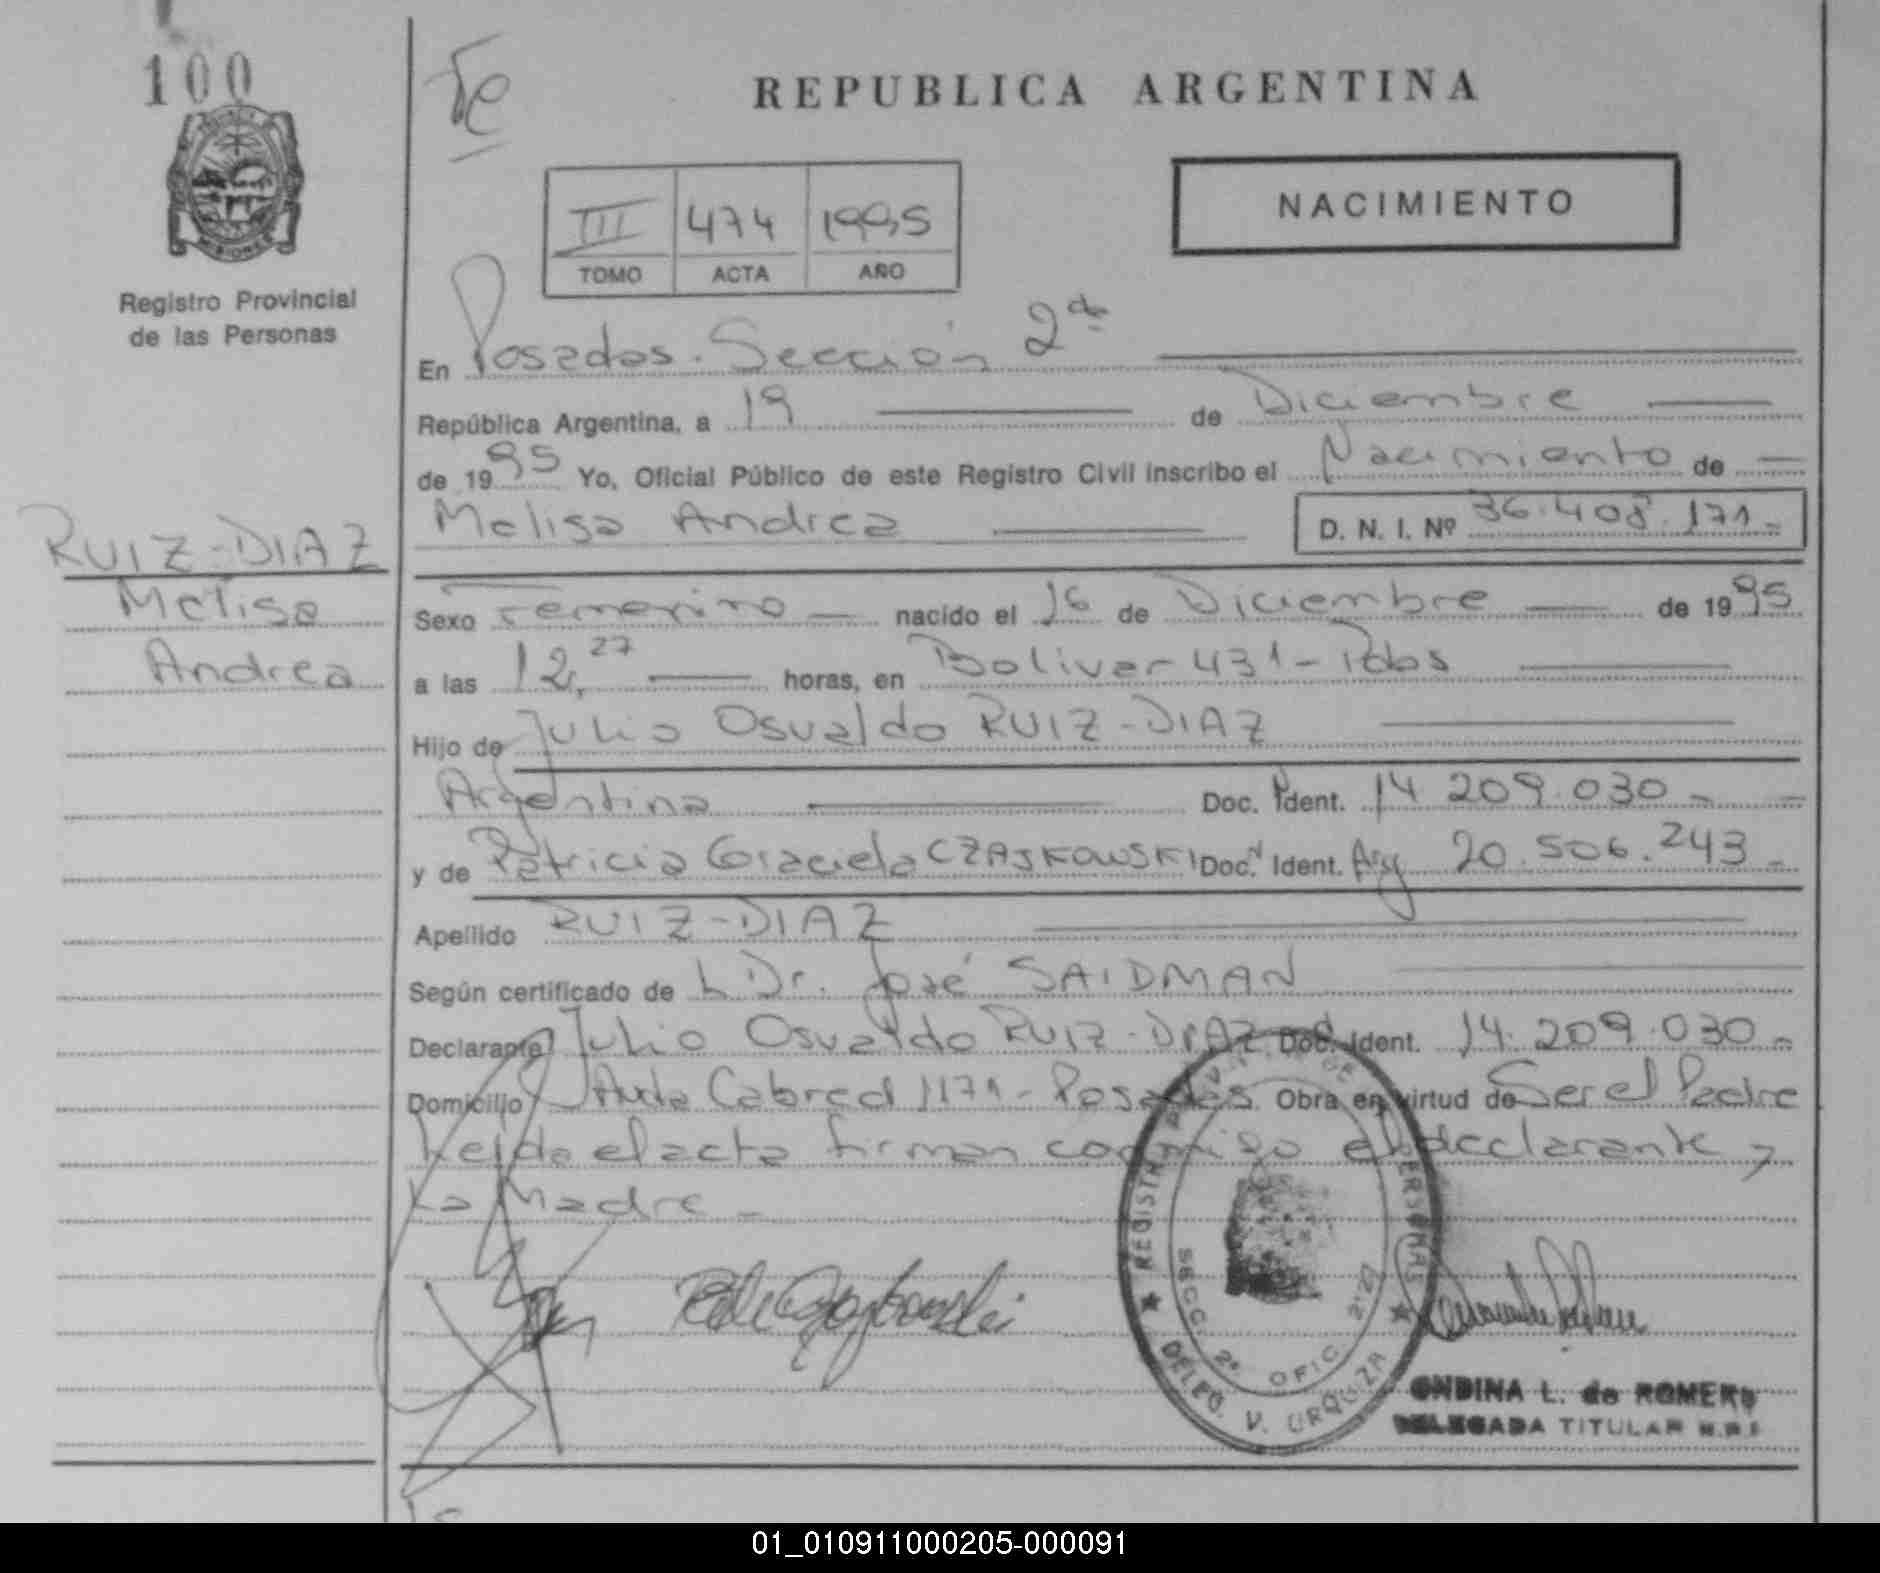 100
Fe
REPUBLICA ARGENTINA
NACIMIENTO
III 474 1995
TOMO ACTA AÑO
MISIONES
Registro Provincial
de las Personas
En Posadas. Sección 2da
República Argentina, a 19 de Diciembre
de 1995 Yo, Oficial Público de este Registro Civil inscribo el Nacimiento de
Melisa Andrea D. N. I. Nº 36.408.171.-
RUIZ-DIAZ
Melisa
Andrea
Sexo Femenino nacido el 16 de Diciembre de 1995
a las 12,27 horas, en Bolivar 431 - Pdas
Hijo de Julio Osvaldo RUIZ-DIAZ
Argentina Doc. Ident. 14.209.030.-
y de Patricia Graciela CZAJKOWSKI Doc. Ident. Arg 20.506.243.-
Apellido RUIZ-DIAZ
Según certificado de L Dr. José SAIDMAN
Declarante Julio Osvaldo RUIZ-DIAZ Doc. Ident. 14.209.030.-
Domicilio Avda Cabred 1171 - Posadas Obra en virtud de Ser el Padre
Leida el acta firman conmigo el declarante y
La Madre -
REGISTRO PROVINCIAL DE LAS PERSONAS
SECC. 2ª OFIC. 2127
DELEG. V. URQUIZA
ONDINA L. de ROMERO
DELEGADA TITULAR
01_010911000205-000091